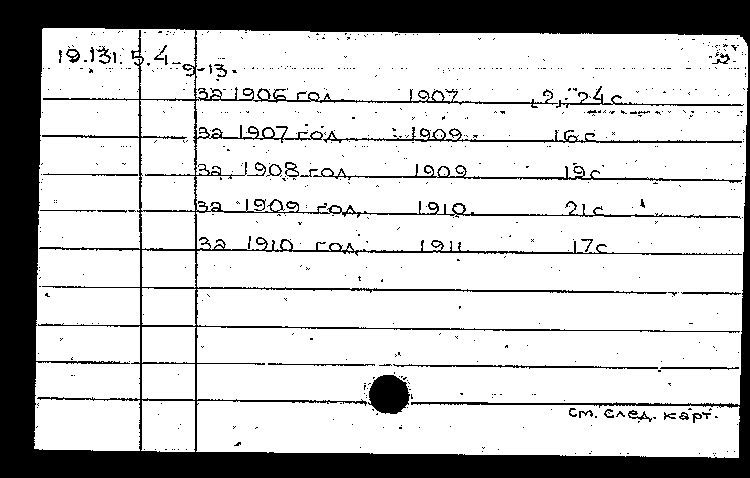 19.131.5.4-
9-13.
за 1906 год 1907 [2], 24 с.
за 1907 год 1909 16 с
за 1908 год 1909 19 с
за 1909 год 1910. 21 с
за 1910 год 1911 17 с.
см. след. карт.